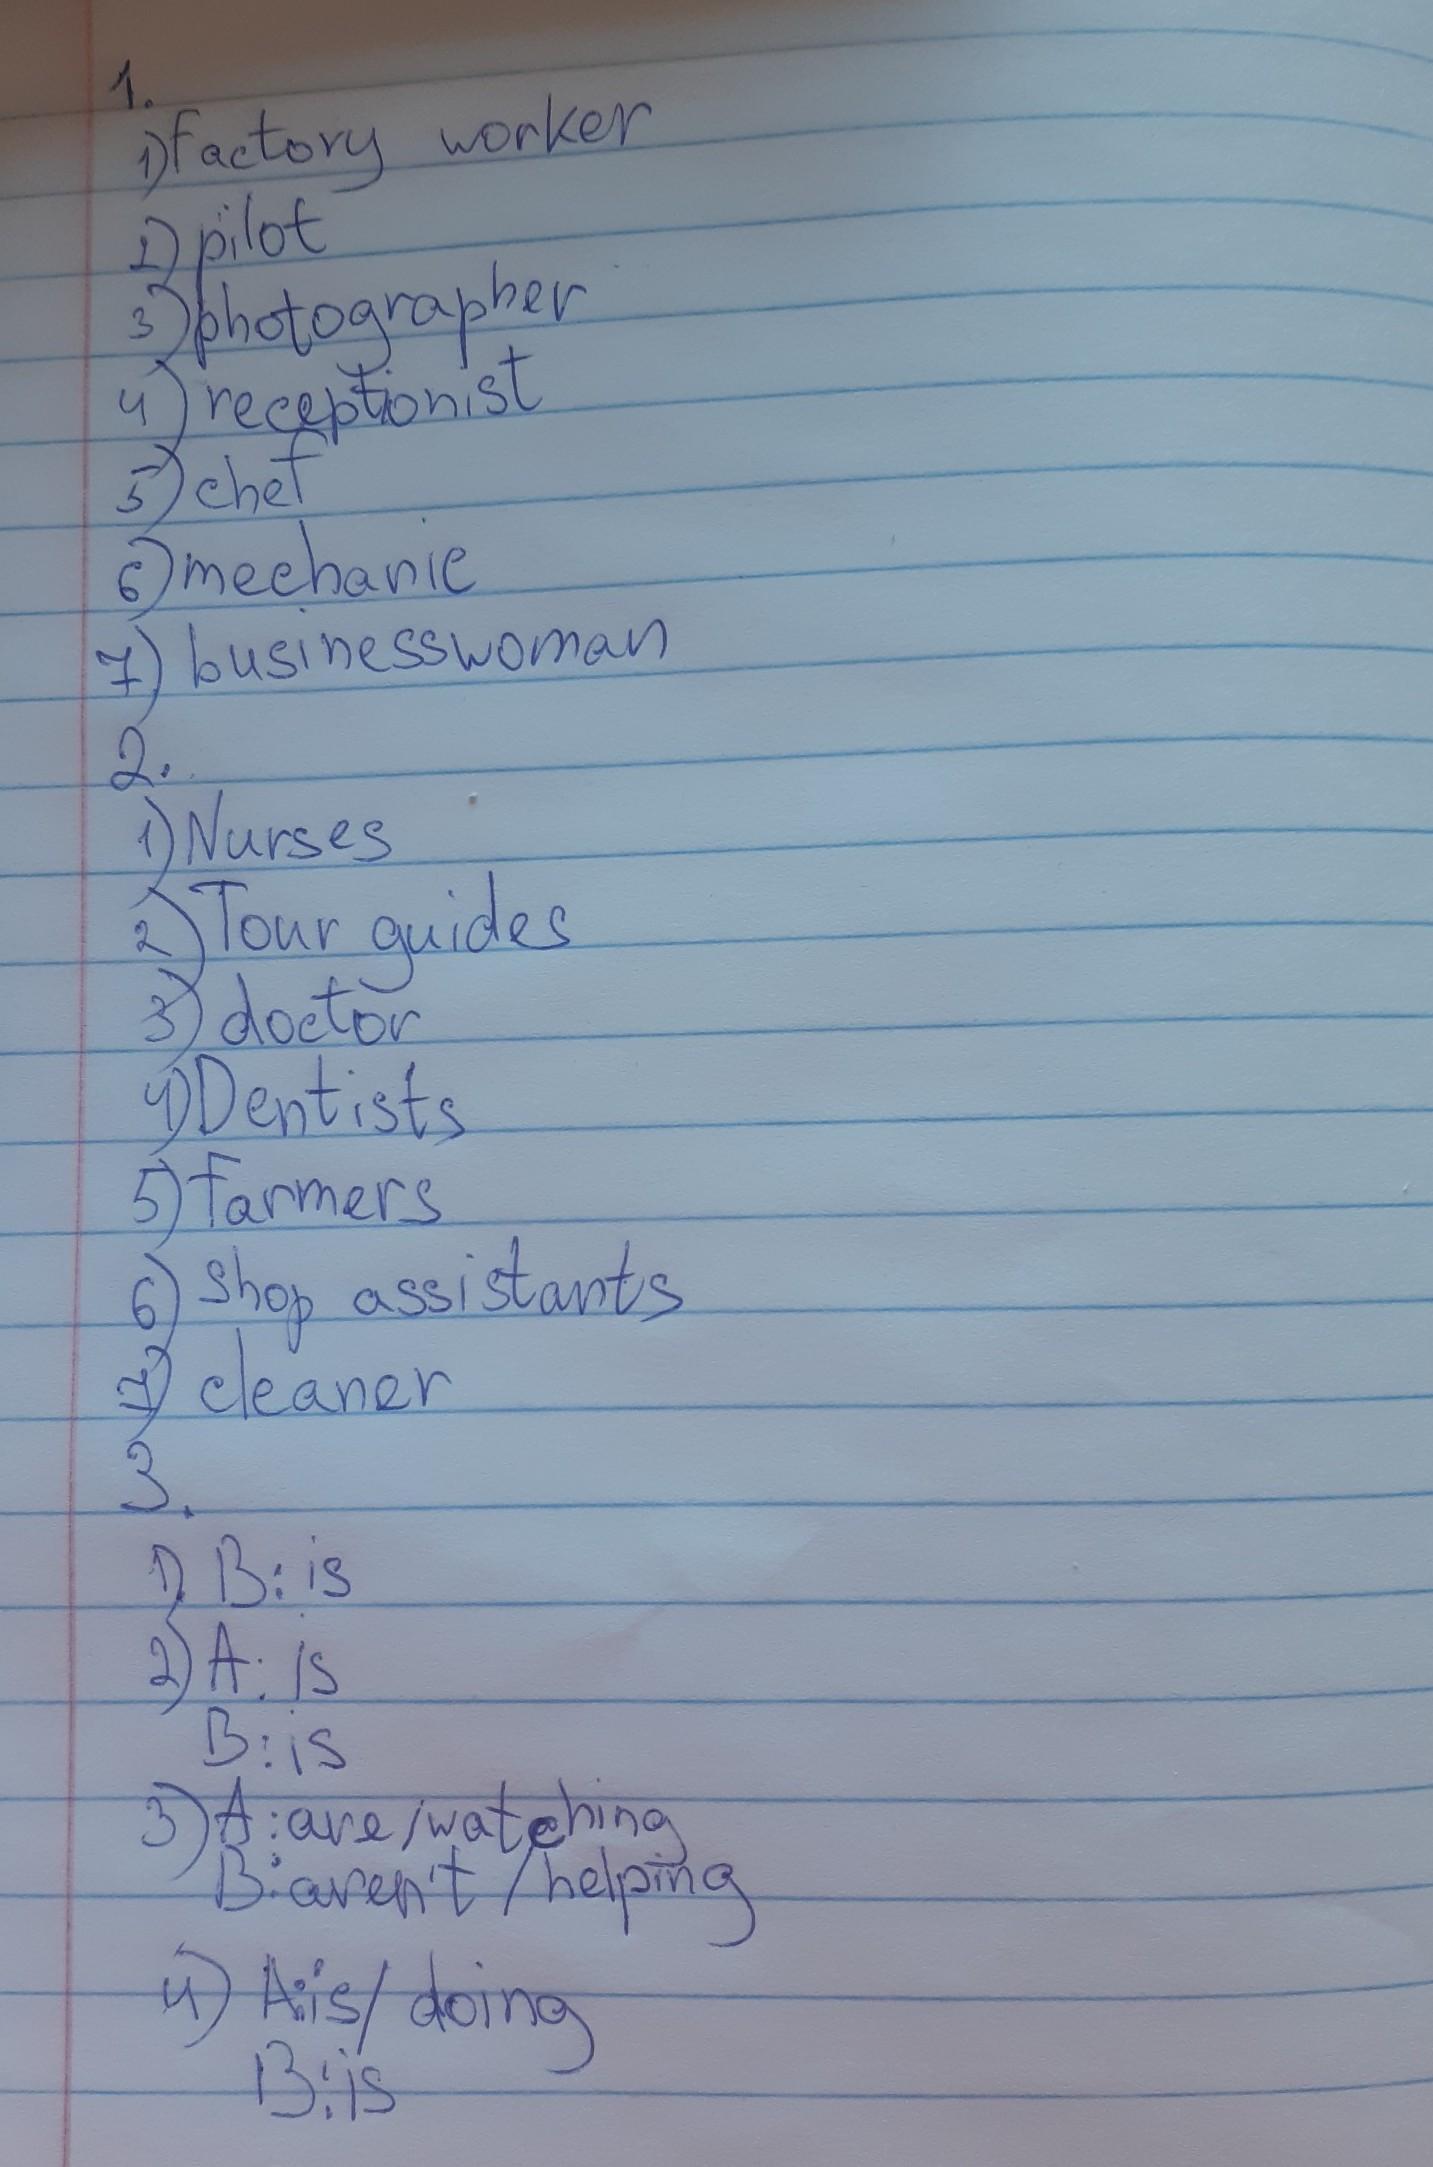 1.
1) factory worker
2) pilot
3) photographer
4) receptionist
5) chef
6) mechanic
7) businesswoman
2.
1) Nurses
2) Tour guides
3) doctor
4) Dentists
5) farmers
6) Shop assistants
7) cleaner
3.
1) B: is
2) A: is
B: is
3) A: are/watching
B: aren't/helping
4) A: is/doing
B: is